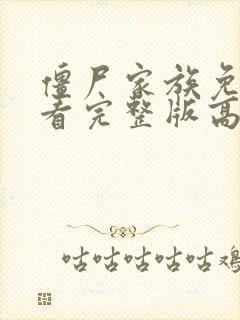 僵尸家族免
看完整版高
咕咕咕咕咕鸡